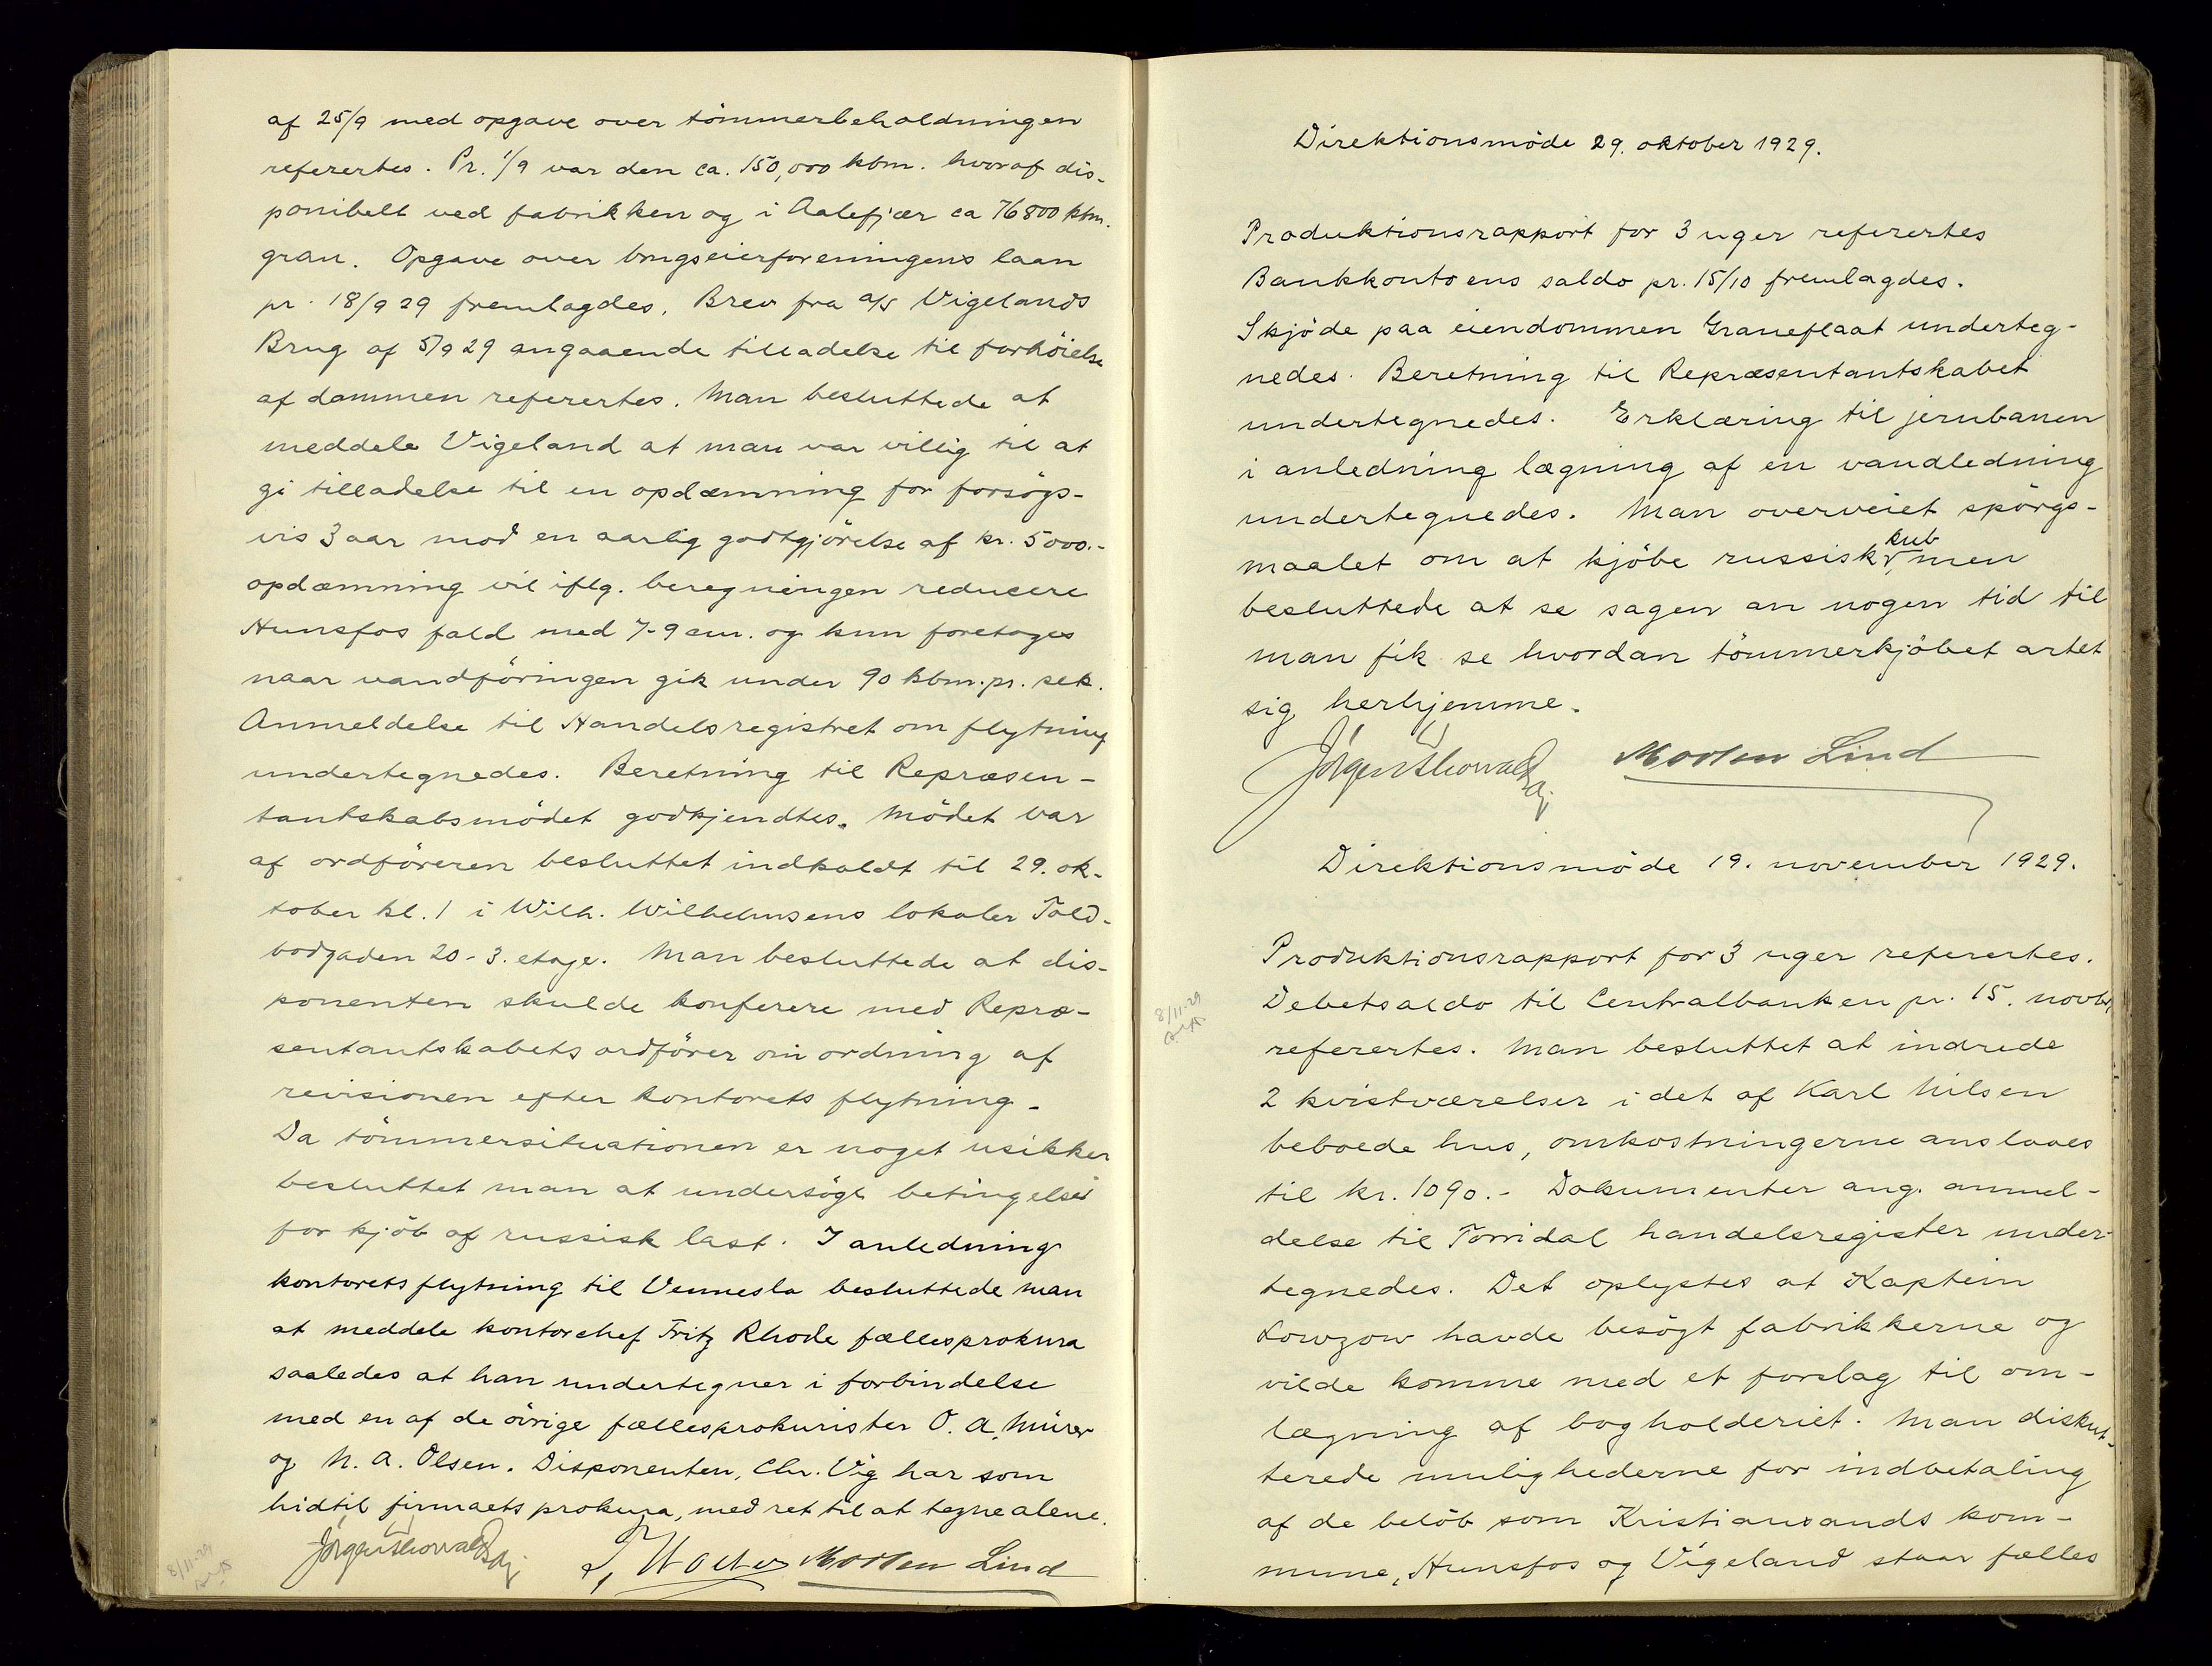 af 25/9 med opgave over tömmerbeholdningen
refererters. Pr. 1/9 var den ca. 150,000 kbm. hvoraf dis-
ponibelt ved fabrikken og i Aalefjær ca 76800 kbm.
gran. Opgave over brugseierforeningens laan
pr. 18/9 29 fremlagdes. Brev fra a/s Vigelands
Brug af 5/9 29 angaaende tilladelse til forhöielse
af dammen refererters. Man besluttede at
meddele Vigeland at man var villig til at
gi tilladelse til en opdæmning for forsögs-
vis 3 aar mod en aarlig godtgjörelse af kr. 5000.-
opdæmning vil iflg. beregningen reducere
Hunsfos fald med 7-9 cm. og kun foretages
naar vandföringen gik under 90 kbm. pr. sek.
Anmeldelse til Handelsregistret om flytning
undertegnedes. Beretning til Repræsen-
tantskabsmödet godkjendtes. Mödet var
af ordföreren besluttet indkaldt til 29. ok-
tober kl. 1 i Wilh. Wilhelmsens lokaler Told-
bodgaden 20 - 3. etage. Man besluttede at dis-
ponenten skulde konferere med Repræ-
sentantskabets ordförer om ordning af
revisionen efter kontorets flytning.
Da tömmersituationen er noget usikker
besluttet man at undersöge betingelser
for kjöb af russisk last. I anledning
kontorets flytning til Vennesla besluttede man
at meddele kontorchef Fritz Rhode fællesprokura
saaledes at han undertegner i forbindelse
med en af de övrige fællesprokurister O. A. Mürer
og N. A. Olsen. Disponenten, Chr. Vig har som
hidtil firmaets prokura, med ret til at tegne alene.
Jörgen Morten Lind
8/11-29
Direktionsmöde 29. oktober 1929.
Produktionsrapport for 3 uger refererters
Bankkontoens saldo pr. 15/10 fremlagdes.
Skjöde paa eiendommen Graneflaat underteg-
nedes. Beretning til Repræsentantskabet
undertegnedes. Erklæring til jernbanen
i anledning lægning af en vandledning
undertegnedes. Man overveiet spörgs-
maalet om at kjöbe russisk kub, men
besluttede at se sagen an nogen tid til
man fik se hvordan tömmerkjöbet artet
sig herhjemme.
Jörgen Morten Lind
Direktionsmöde 19. november 1929.
8/11-29
Produktionsrapport for 3 uger refererters.
Debetsaldo til Centralbanken pr. 15. novbr.
refererters. Man besluttet at indrede
2 kvistværelser i det af Karl Nilsen
beboede hus, omkostningerne anslaaes
til kr. 1090.- Dokumenter ang. anmel-
delse til Torridal handelsregister under-
tegnedes. Det oplystes at Kaptein
Lowzow havde besögt fabrikkerne og
vilde komme med et forslag til om-
lægning af bogholderiet. Man disku-
terede mulighederne for indbetaling
af de belöb som Kristiansands kom-
mune, Hunsfos og Vigeland staar fælles